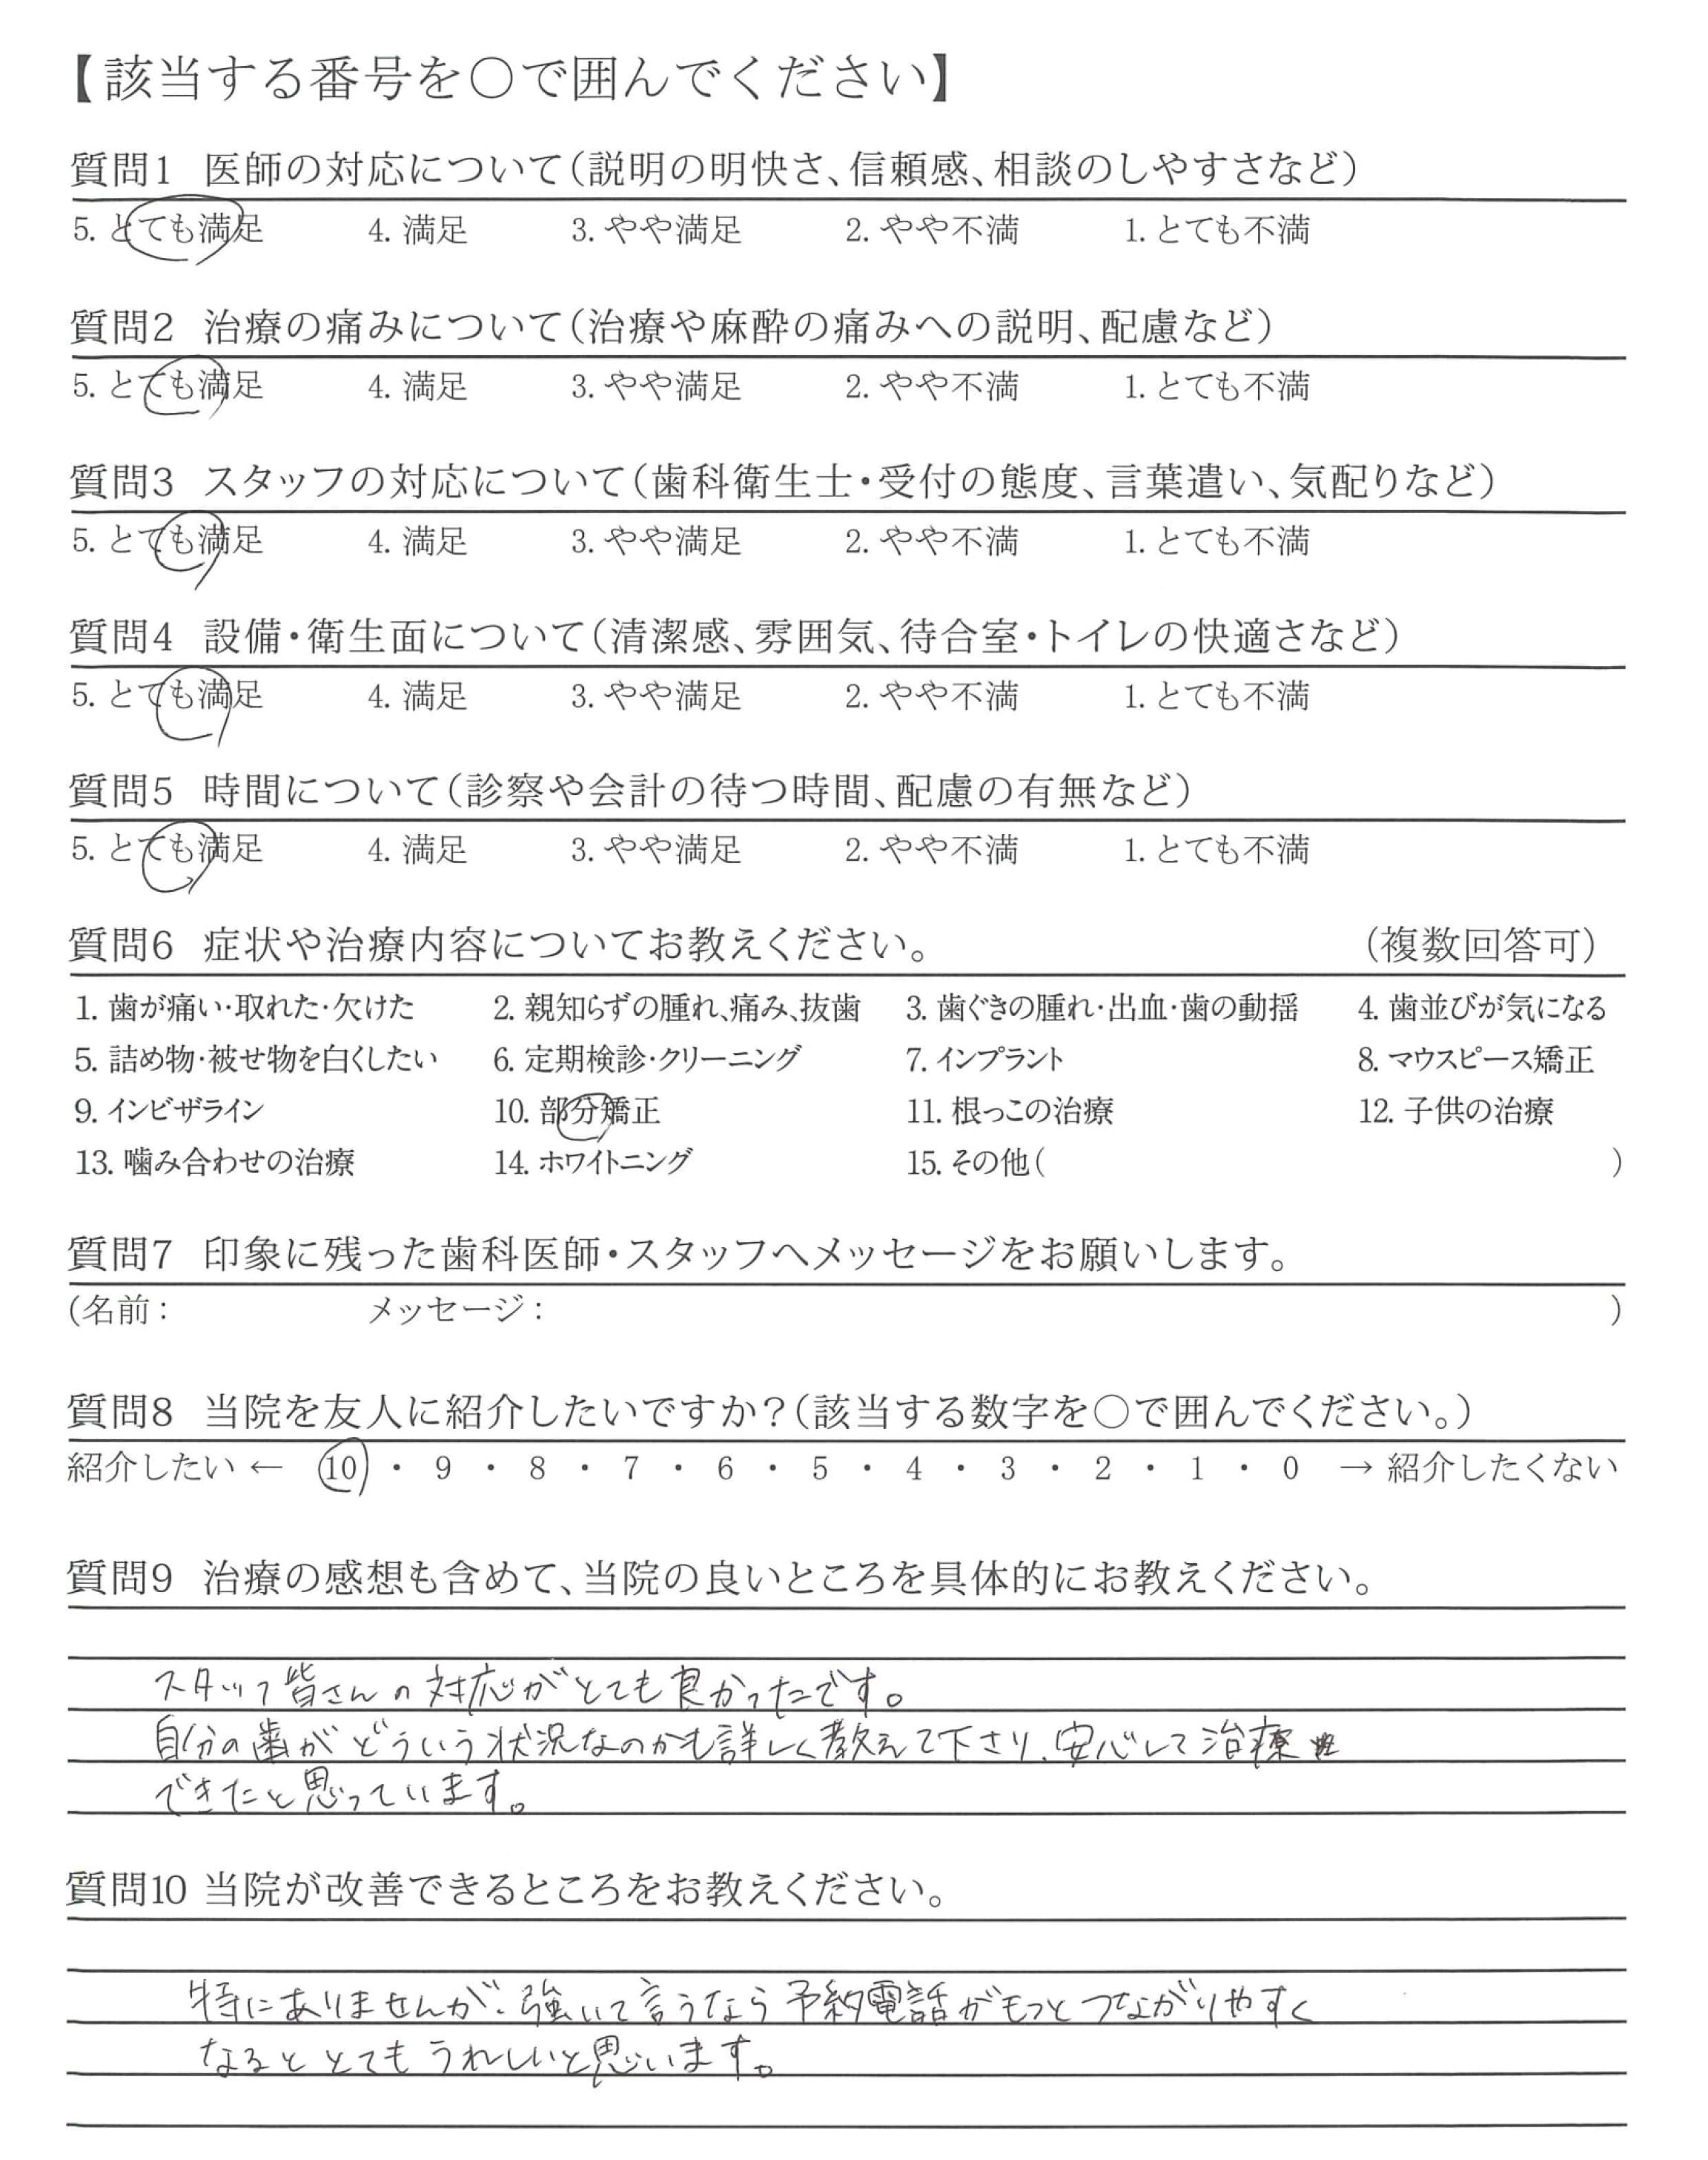 【該当する番号を○で囲んでください】
質問1 医師の対応について(説明の明快さ、信頼感、相談のしやすさなど)
5. とても満足 4. 満足 3. やや満足 2. やや不満 1. とても不満
質問2 治療の痛みについて(治療や麻酔の痛みへの説明、配慮など)
5. とても満足 4. 満足 3. やや満足 2. やや不満 1. とても不満
質問3 スタッフの対応について(歯科衛生士・受付の態度、言葉遣い、気配りなど)
5. とても満足 4. 満足 3. やや満足 2. やや不満 1. とても不満
質問4 設備・衛生面について(清潔感、雰囲気、待合室・トイレの快適さなど)
5. とても満足 4. 満足 3. やや満足 2. やや不満 1. とても不満
質問5 時間について(診察や会計の待つ時間、配慮の有無など)
5. とても満足 4. 満足 3. やや満足 2. やや不満 1. とても不満
質問6 症状や治療内容についてお教えください。 (複数回答可)
1. 歯が痛い・取れた・欠けた 2. 親知らずの腫れ、痛み、抜歯 3. 歯ぐきの腫れ・出血・歯の動揺 4. 歯並びが気になる
5. 詰め物・被せ物を白くしたい 6. 定期検診・クリーニング 7. インプラント 8. マウスピース矯正
9. インビザライン 10. 部分矯正 11. 根っこの治療 12. 子供の治療
13. 噛み合わせの治療 14. ホワイトニング 15. その他( )
質問7 印象に残った歯科医師・スタッフへメッセージをお願いします。
(名前: メッセージ: )
質問8 当院を友人に紹介したいですか?(該当する数字を○で囲んでください。)
紹介したい ← 10 ・ 9 ・ 8 ・ 7 ・ 6 ・ 5 ・ 4 ・ 3 ・ 2 ・ 1 ・ 0 → 紹介したくない
質問9 治療の感想も含めて、当院の良いところを具体的にお教えください。
スタッフ皆さんの対応がとても良かったです。
自分の歯がどういう状況なのかも詳しく教えて下さり、安心して治療
できたと思っています。
質問10 当院が改善できるところをお教えください。
特にありませんが、強いて言うなら予約電話がもっとつながりやすく
なるととてもうれしいと思います。